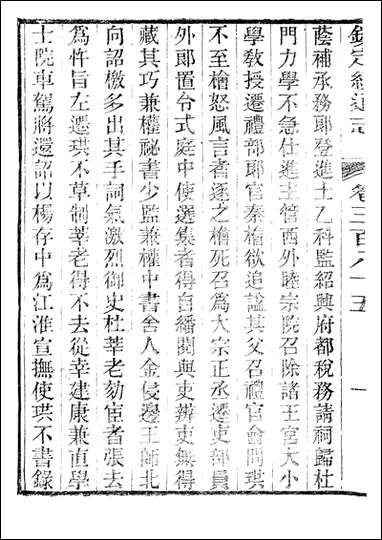 欽定續通志 卷三百八十五 一
蔭補承務郞登進士乙科監紹興府都稅務請祠歸杜
門力學不急仕進主管西外睦宗院召除諸王宮大小
學敎授遷禮部郞官秦檜欲追諡其父召禮官會問珙
不至檜怒風言者逐之檜死召爲大宗正丞遷吏部員
外郞置令式庭中使選集者得自繙閱與吏辨吏無得
藏其巧兼權祕書少監兼權中書舍人金侵邊王師北
向詔檄多出其手詞氣激烈御史杜莘老劾宦者張去
爲忤旨左遷珙不草制莘老得不去從幸建康兼直學
士院車駕將還詔以楊存中爲江淮宣撫使珙不書錄